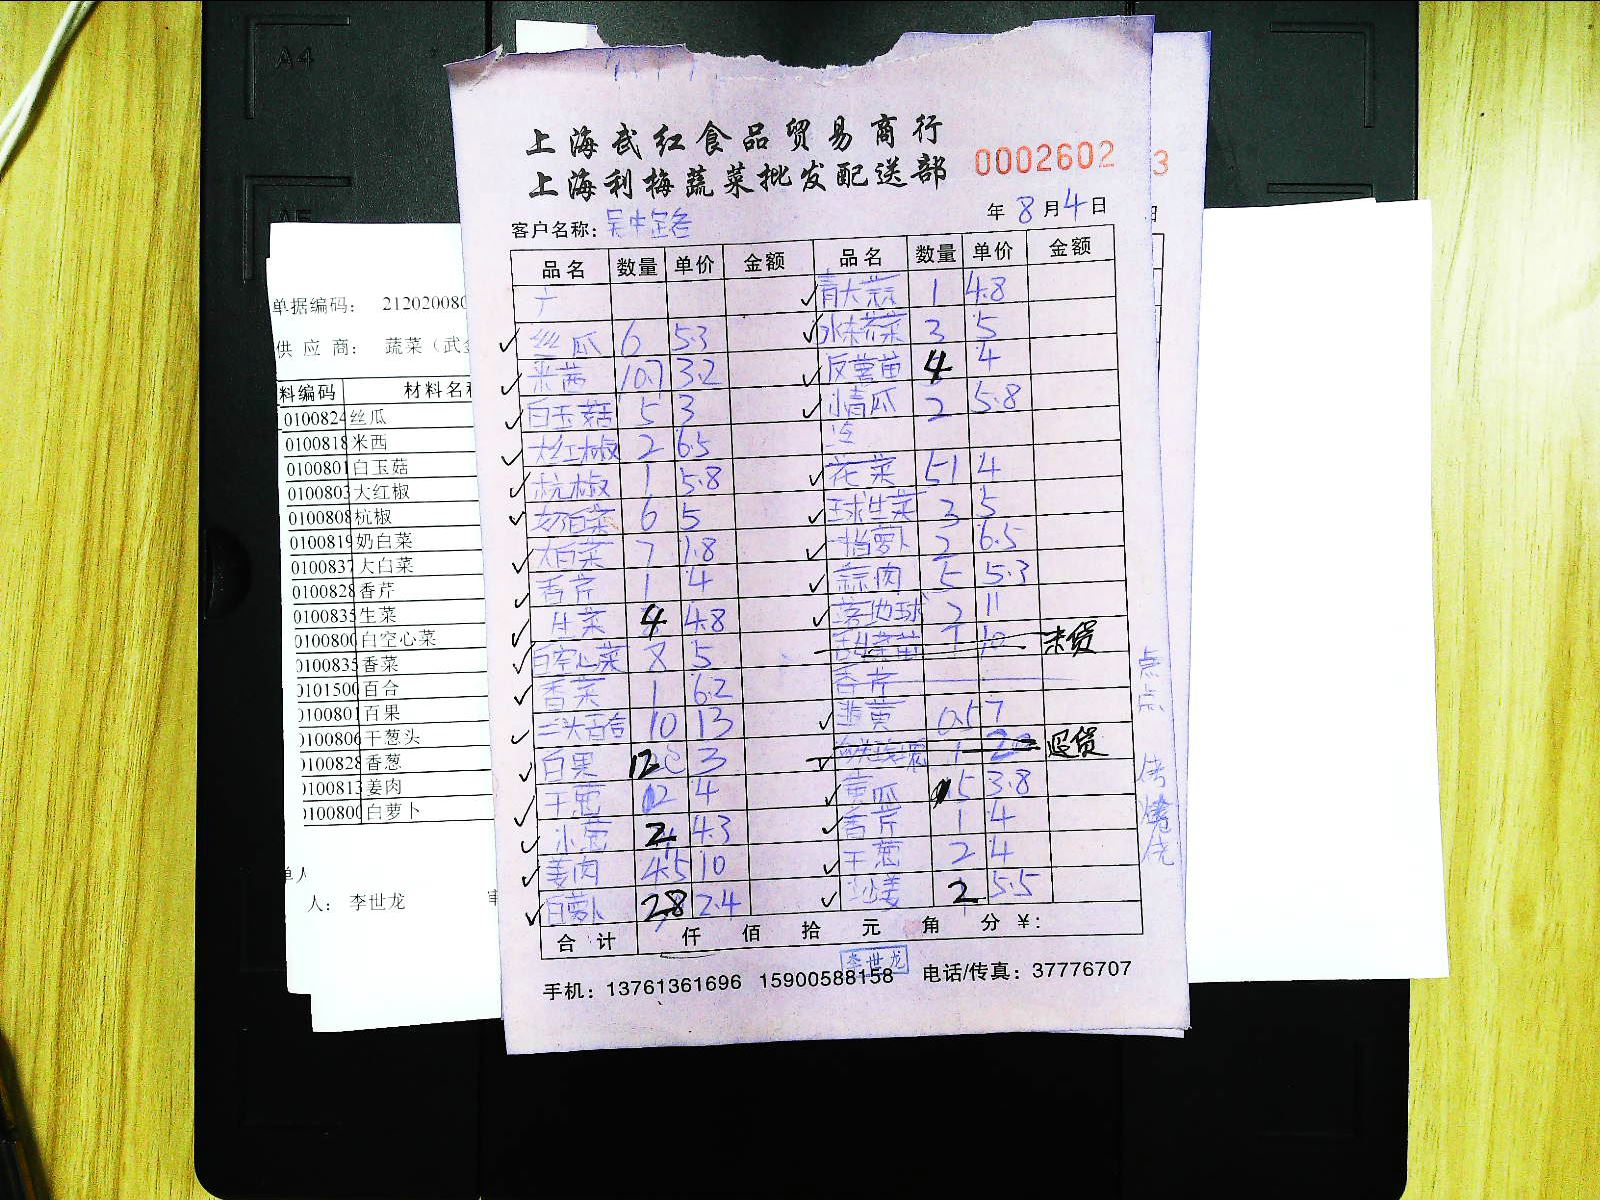 上海武红食品贸易商行
上海利梅蔬菜批发配送部
0002602
3
年 8 月 4 日
客户名称:
品名 数量 单价 金额 品名 数量 单价 金额
广 青大蒜 1 4.8
丝瓜 6 5.3 水东芥菜 3 5
米茜 10.7 3.2 反薯苗 4 4
白玉菇 5 3 小青瓜 2 5.8
大红椒 2 6.5
杭椒 1 5.8 花菜 51 4
奶白菜 6 5 球生菜 3 5
大白菜 7 1.8 萝卜 2 6.5
香芹 1 4 蒜肉 5 5.3
生菜 4 4.8 落地球 2 11
白空心菜 8 5 1 10 未货
香菜 1 6.2 香芹
三头百合 10 13 韭黄 0.5 7
白果 12 3 1 退货
干葱 12 4 黄瓜 15 3.8
小葱 2 4.3 香芹 1 4
姜肉 4.5 10 干葱 2 4
白萝卜 28 2.4 沙姜 2 5.5
合计 仟 佰 拾 元 角 分 ¥:
李世龙
手机: 13761361696 15900588158 电话/传真: 37776707
点
点
烤
烧
单据编码: 212020080
供应商: 蔬菜(武
料编码 材料名
0100824 丝瓜
0100818 米西
0100801 白玉菇
0100803 大红椒
0100808 杭椒
0100819 奶白菜
0100837 大白菜
0100828 香芹
0100835 生菜
0100800 白空心菜
0100835 香菜
0101500 百合
0100801 百果
0100806 干葱头
0100828 香葱
0100813 姜肉
0100800 白萝卜
单人
人: 李世龙
A4
A5